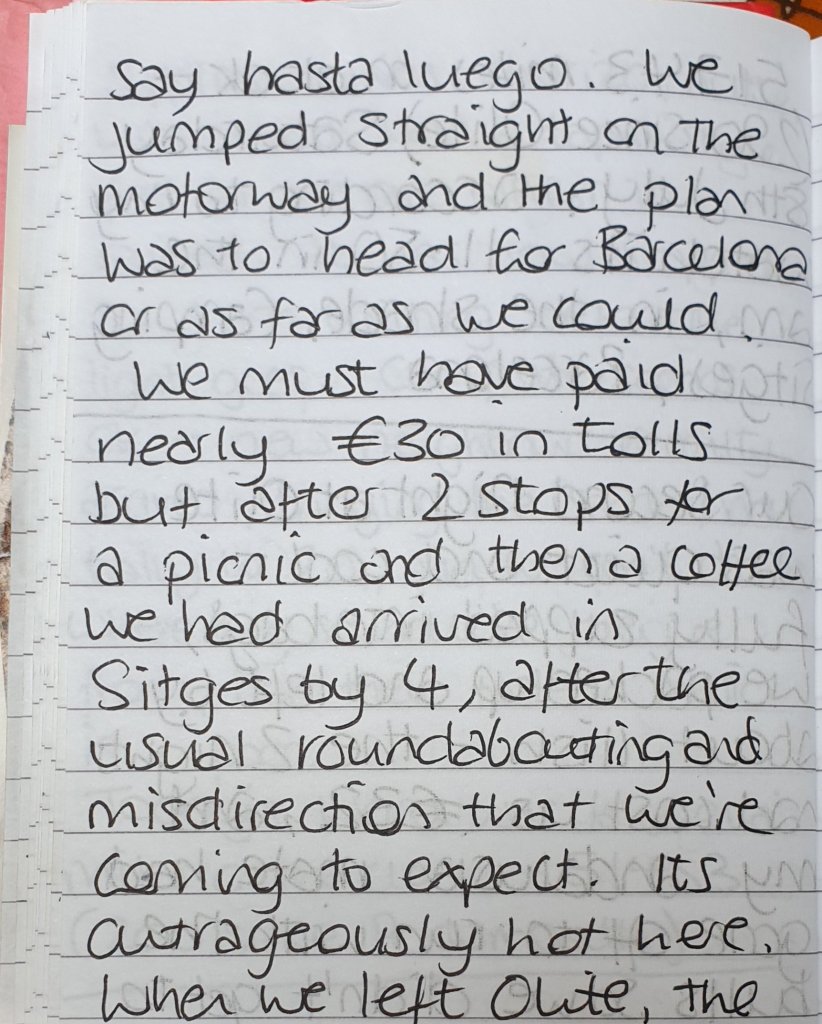 say hasta luego. We
jumped straight on the
motorway and the plan
was to head for Barcelona
or as far as we could.
We must have paid
nearly €30 in tolls
but after 2 stops for
a picnic and then a coffee
we had arrived in
Sitges by 4, after the
usual roundabouting and
misdirection that we're
coming to expect. Its
outrageously hot here.
When we left Olite, the